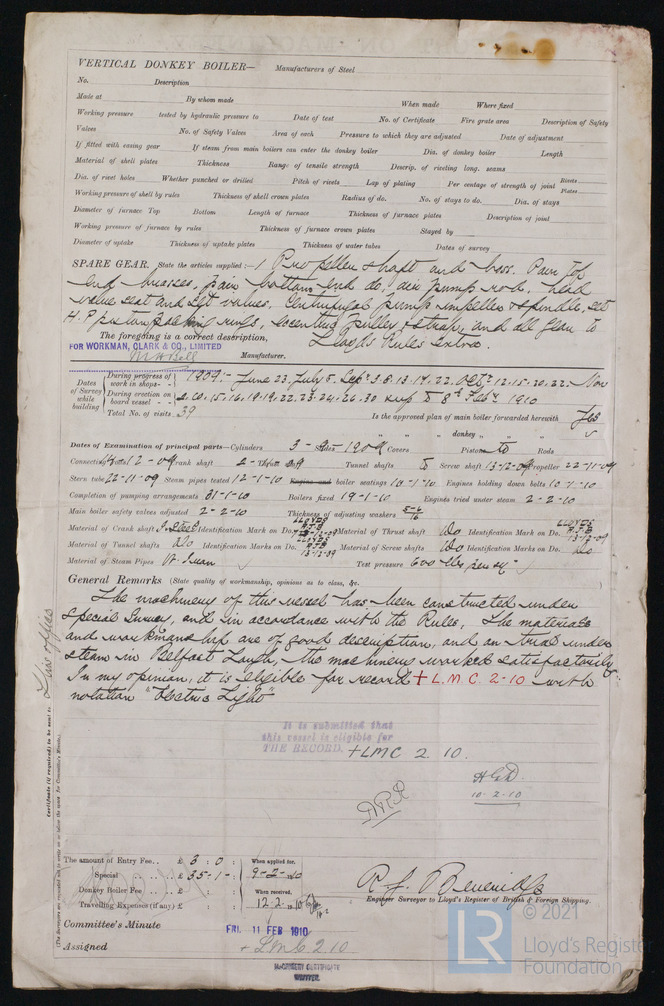 VERTICAL DONKEY BOILER— Manufacturers of Steel
No. Description
Made at By whom made When made Where fixed
Working pressure tested by hydraulic pressure to Date of test No. of Certificate Fire grate area Description of Safety
Valves No. of Safety Valves Area of each Pressure to which they are adjusted Date of adjustment
If fitted with easing gear If steam from main boilers can enter the donkey boiler Dia. of donkey boiler Length
Material of shell plates Thickness Range of tensile strength Descrip. of riveting long. seams
Dia. of rivet holes Whether punched or drilled Pitch of rivets Lap of plating Per centage of strength of joint Rivets Plates
Working pressure of shell by rules Thickness of shell crown plates Radius of do. No. of stays to do. Dia. of stays
Diameter of furnace Top Bottom Length of furnace Thickness of furnace plates Description of joint
Working pressure of furnace by rules Thickness of furnace crown plates Stayed by
Diameter of uptake Thickness of uptake plates Thickness of water tubes Dates of survey
SPARE GEAR. State the articles supplied:— 1 Propeller shaft and boss. Pair top
end brasses, pair bottom end do, air pump rod, head
valve seat and set valves. Centrifugal pump impeller & spindle, set
H.P piston packing rings, eccentric pulley & strap, and all gear to
The foregoing is a correct description, Lloyds Rules extra.
FOR WORKMAN, CLARK & CO., LIMITED
Manufacturer.
Dates of Survey while building
During progress of work in shops-- 1909:- June 23, July 5, Sep 3.8.13.17.22. Oct 12.15.20.22. Nov
During erection on board vessel--- 2.10.15.16.19.19.22.23.24.26.30 & up to 8th Feby 1910
Total No. of visits 39 Is the approved plan of main boiler forwarded herewith Yes
" " " donkey " " "
Dates of Examination of principal parts—Cylinders 3-9-1909 Slides Covers Pistons to Rods
Connecting rods Crank shaft Thrust shaft Tunnel shafts Screw shaft 13-12-09 Propeller 22-11-09
Stern tube 22-11-09 Steam pipes tested 12-1-10 Engine and boiler seatings 10-1-10 Engines holding down bolts 10-1-10
Completion of pumping arrangements 31-1-10 Boilers fixed 19-1-10 Engines tried under steam 2-2-10
Main boiler safety valves adjusted 2-2-10 Thickness of adjusting washers
Material of Crank shaft I. Steel Identification Mark on Do. LLOYDS Material of Thrust shaft Do Identification Mark on Do. LLOYDS 13-12-09
Material of Tunnel shafts Do Identification Marks on Do. LLOYDS 13-12-09 Material of Screw shafts Do Identification Marks on Do. Do
Material of Steam Pipes W. Iron Test pressure 600 lbs per sq"
General Remarks (State quality of workmanship, opinions as to class, &c.
The machinery of this vessel has been constructed under
Special Survey, and in accordance with the Rules. The materials
and workmanship are of good description, and on trial under
steam in Belfast Lough, the machinery worked satisfactorily.
In my opinion, it is eligible for record + L.M.C. 2-10 with
notation "Electric Light"
It is submitted that
this vessel is eligible for
THE RECORD. + LMC 2.10.
10.2.10
Certificate (if required) to be sent to
(The Surveyors are requested not to write on or below the space for Committee's Minute.)
The amount of Entry Fee.. £ 3 : 0 : When applied for,
Special .. .. £ 35 - 1 - : 9-2-1910
Donkey Boiler Fee .. .. £ : : When received,
Travelling Expenses (if any) £ : : 12.2.1910
Engineer Surveyor to Lloyd's Register of British & Foreign Shipping.
Committee's Minute FRI. 11 FEB 1910
Assigned + LMC 2.10
MACHINERY CERTIFICATE
WRITTEN.
© 2021
LR
Lloyd's Register
Foundation